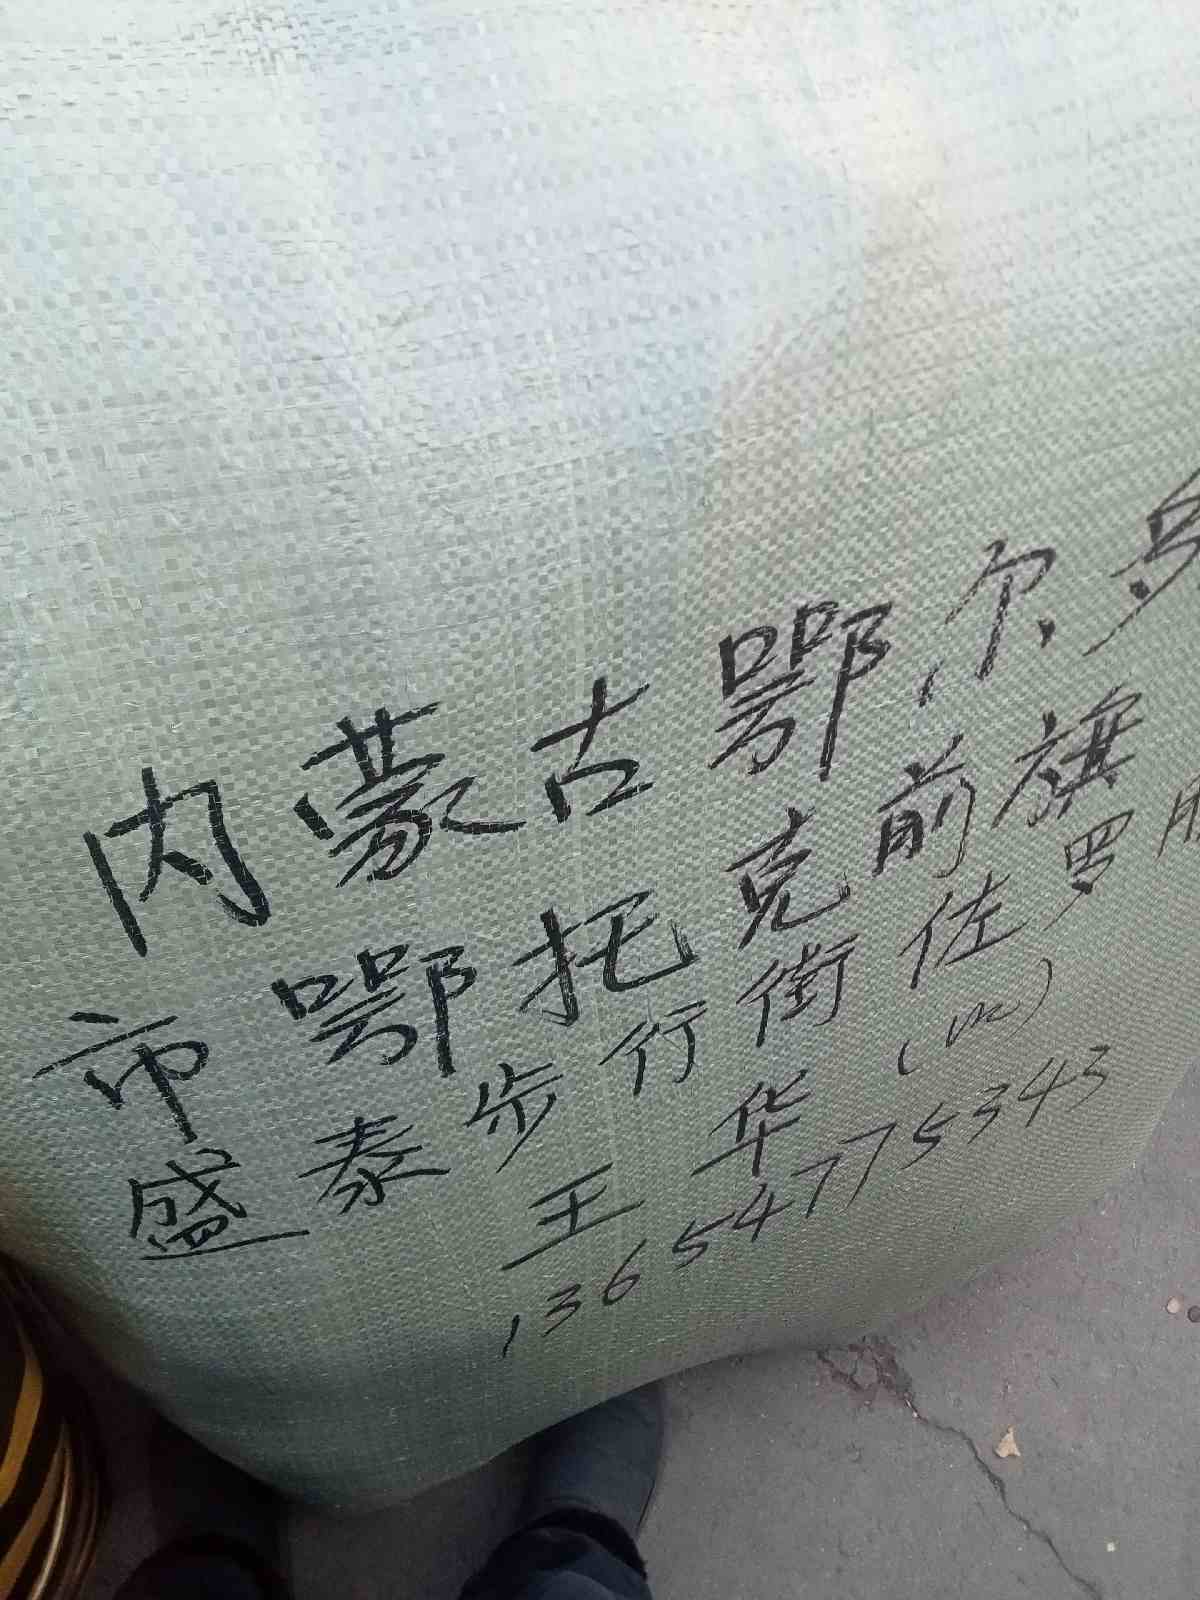 内蒙古鄂尔多
市鄂托克前旗
盛泰步行街佐罗服
王华(收)
13654775343